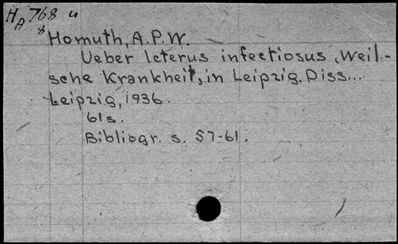 HA 768 u
8
Homuth, A.P.W.
Ueber Icterus infectiosus, Weil-
sche Krankheit, in Leipzig. Diss...
Leipzig, 1936.
61s.
Bibliogr. s. 57-61.